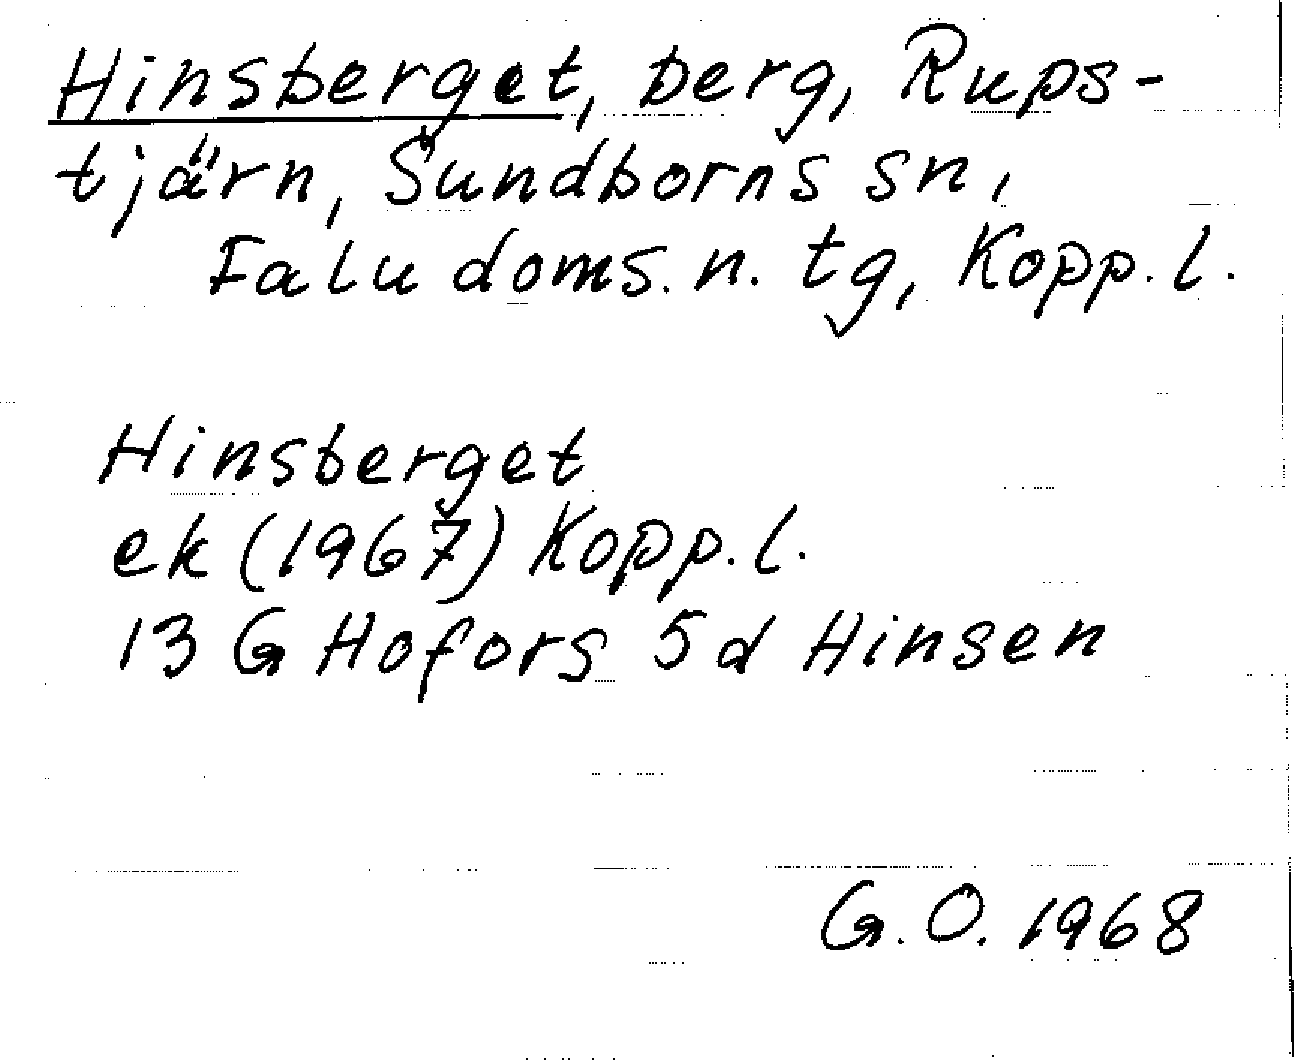 Hinsberget, berg, Rups-
tjärn, Sundborns sn,
Falu doms. n. tg, Kopp. l.
Hinsberget
ek (1967) Kopp. l.
13 G Hofors 5d Hinsen
G. O. 1968